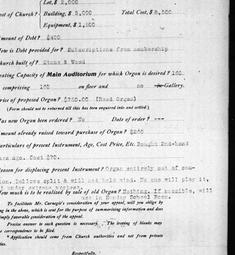 Lot, $ 2,000
Cost of Church? Building, $ 5,000 Total Cost, $ 8,500
Equipment, $ 1,500
Amount of Debt? $400
How is Debt provided for? Subscriptions from membership
Church built of? Stone & Wood
Seating Capacity of Main Auditorium for which Organ is desired? 160.
comprising 160 on floor and no
Price of proposed Organ? $750.00 (Reed Organ)
(Form should not be returned till this has been enquired into and settled.)
Has new Organ been ordered? No Date of order? ---
Amount already raised toward purchase of Organ? $250
Particulars of present Instrument, Age, Cost Price, Etc. Bought 2nd-hand
ago. Cost $70.
Reason for displacing present Instrument? Organ entirely out of
bellows split & will not hold wind. No one will play it,
under extreme
How much is to be realized by sale of old Organ? Nothing. If possible, will
in Sunday School Room.
To facilitate Mr. Carnegie's consideration of your appeal, will you oblige by
in the above, which is use for the purpose of summarizing information and
favorable consideration of the appeal.
Precise answer to each question is necessary. The leaving of blanks may
correspondence to be filed.
* Application should come from Church authorities and not from private
Respectfully,